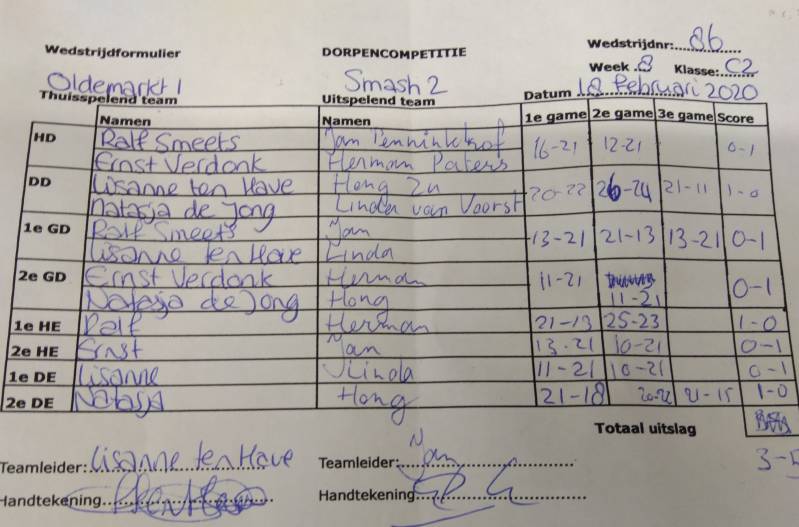 Wedstrijdformulier DORPENCOMPETITIE Wedstrijdnr: 86
Week 8 Klasse: C2
Oldemarkt 1 Smash 2 Datum 18 Februari 2020
Thuisspelend team Uitspelend team
Namen Namen 1e game 2e game 3e game Score
HD Ralf Smeets Jan 16-21 12-21 0-1
Ernst Verdonk Herman Paters
DD Lisanne ten Have Hong Zu 20-22 26-24 21-11 1-0
Natasja de Jong Linda van Voorst
1e GD Ralf Smeets Jan 13-21 21-13 13-21 0-1
Lisanne ten Have Linda
2e GD Ernst Verdonk Herman 11-21 11-21 0-1
Natasja de Jong Hong
1e HE Ralf Herman 21-13 25-23 1-0
2e HE Ernst Jan 13-21 10-21 0-1
1e DE Lisanne Linda 11-21 10-21 0-1
2e DE Natasja Hong 21-18 20-22 21-15 1-0
Totaal uitslag
3-5
Teamleider: Lisanne ten Have Teamleider: Jan
Handtekening Handtekening